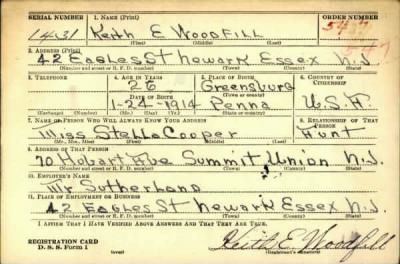 SERIAL NUMBER 1. NAME (Print) ORDER NUMBER
1431 Keith E Woodfill 547
(First) (Middle) (Last) 547
2. ADDRESS (Print)
42 Eagles St Newark Essex N.J.
(Number and street or R. F. D. number) (Town) (County) (State)
3. TELEPHONE 4. AGE IN YEARS 5. PLACE OF BIRTH 6. COUNTRY OF CITIZENSHIP
26 Greensburg
DATE OF BIRTH (Town or county)
1-24-1914 Penna U.S.A.
(Mo.) (Day) (Yr.) (State or country)
7. NAME OF PERSON WHO WILL ALWAYS KNOW YOUR ADDRESS 8. RELATIONSHIP OF THAT PERSON
Miss Stella Cooper Aunt
(Mr., Mrs., Miss) (First) (Middle) (Last)
9. ADDRESS OF THAT PERSON
70 Hobart Ave Summit Union N.J.
(Number and street or R. F. D. number) (Town) (County) (State)
10. EMPLOYER'S NAME
Mr Sutherland
11. PLACE OF EMPLOYMENT OR BUSINESS
42 Eagles St Newark Essex N.J.
(Number and street or R. F. D. number) (Town) (County) (State)
I AFFIRM THAT I HAVE VERIFIED ABOVE ANSWERS AND THAT THEY ARE TRUE.
REGISTRATION CARD
D. S. S. Form 1 (over) Keith E. Woodfill
(Registrant's signature)